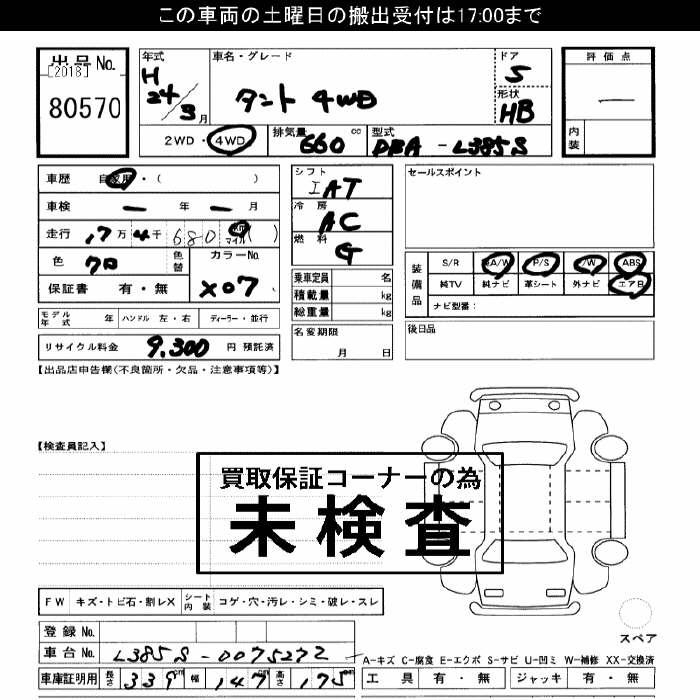 この車両の土曜日の搬出受付は17:00まで
出品No.
[2018]
80570
年式
H
24/3月
車名・グレード
タント 4WD
ドア
5
形状
HB
評価点
―
内装
2WD・4WD
排気量 660 cc
型式 DBA - L385S
車歴 自家用・( )
車検 ― 年 ― 月
走行 17万4千680 マイル ( )
色 クロ
色替
カラーNo.
X07
保証書 有・無
シフト
IAT
冷房
AC
燃料
G
乗車定員 名
積載量 kg
総重量 kg
セールスポイント
装備品
S/R A/W P/S P/W ABS
純TV 純ナビ 革シート 外ナビ エアB
ナビ型番:
モデル年式 年 ハンドル 左・右 ディーラー・並行
リサイクル料金 9,300 円 預託済
名変期限
月 日
後日品
【出品店申告欄(不良箇所・欠品・注意事項等)】
【検査員記入】
買取保証コーナーの為
未検査
FW キズ・トビ石・割レX シート内装 コゲ・穴・汚レ・シミ・破レ・スレ
スペア
登録No.
車台No. L385S-0075272
A-キズ C-腐食 E-エクボ S-サビ U-凹ミ W-補修 XX-交換済
車庫証明用 長さ 339cm 幅 147cm 高さ 175cm
工具 有・無 ジャッキ 有・無